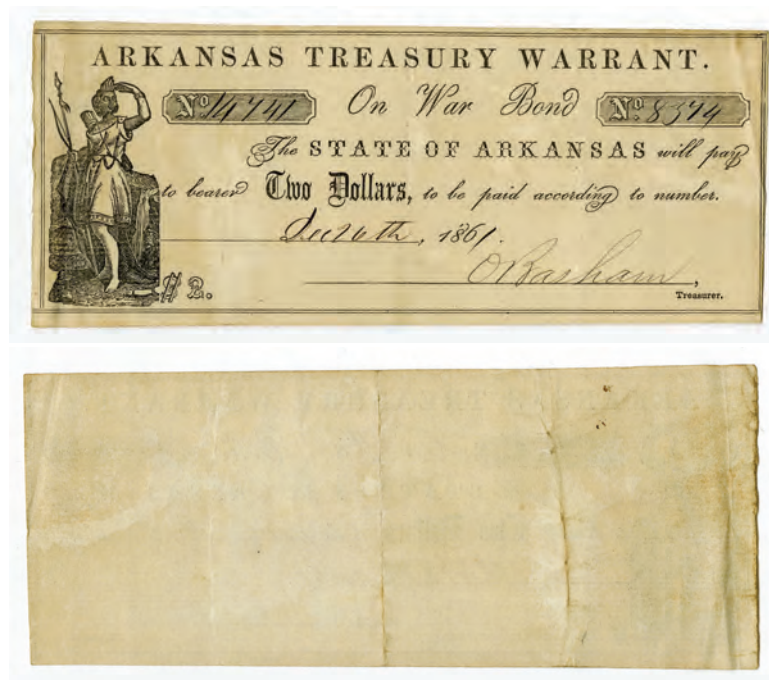 ARKANSAS TREASURY WARRANT.
No. 14741 On War Bond No. 8374
The STATE OF ARKANSAS will pay
to bearer Two Dollars, to be paid according to number.
Dec 26th, 1861.
O Basham,
$ 2. Treasurer.